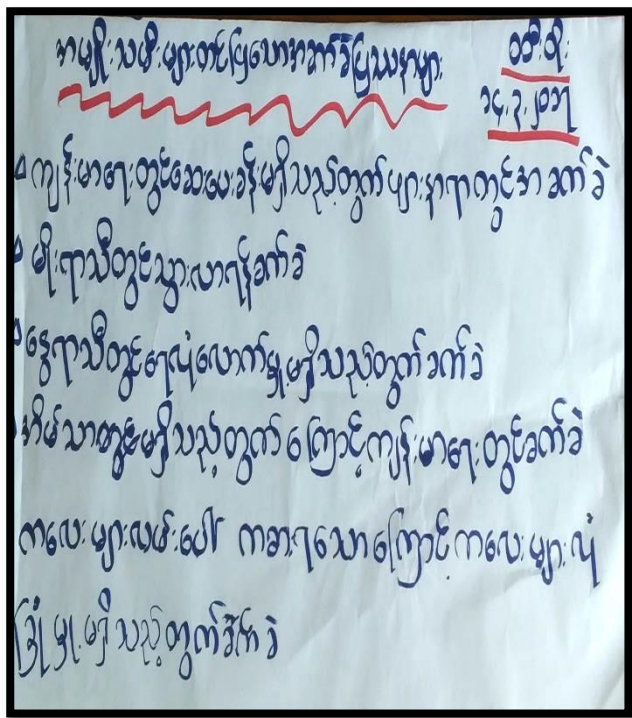 အမျိုးသမီးများတင်ပြသောအခက်ခဲပြဿနာများ
ထီးပိုး
၁၄.၃.၂၀၁၇
ကျန်းမာရေးတွင်ဆေးပေးခန်းမရှိသည့်တွက်ဖျားနာရာတွင်အခက်ခဲ
မိုးရာသီတွင်သွားလာရန်ခက်ခဲ
နွေရာသီတွင်ရေလုံလောက်မှု့မရှိသည့်တွက်ခက်ခဲ
အိမ်သာတွင်းမရှိသည့်တွက်ကြောင့်ကျန်းမာရေးတွင်ခက်ခဲ
ကလေးများလမ်းပေါ် ကစားရသောကြောင့်ကလေးများလုံ
ခြုံမှု့မရှိသည့်တွက်ခက်ခဲ